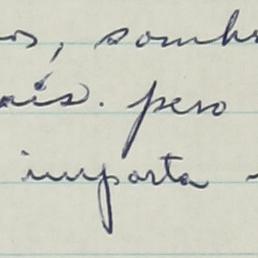 os, sombr
ais. pero
importa